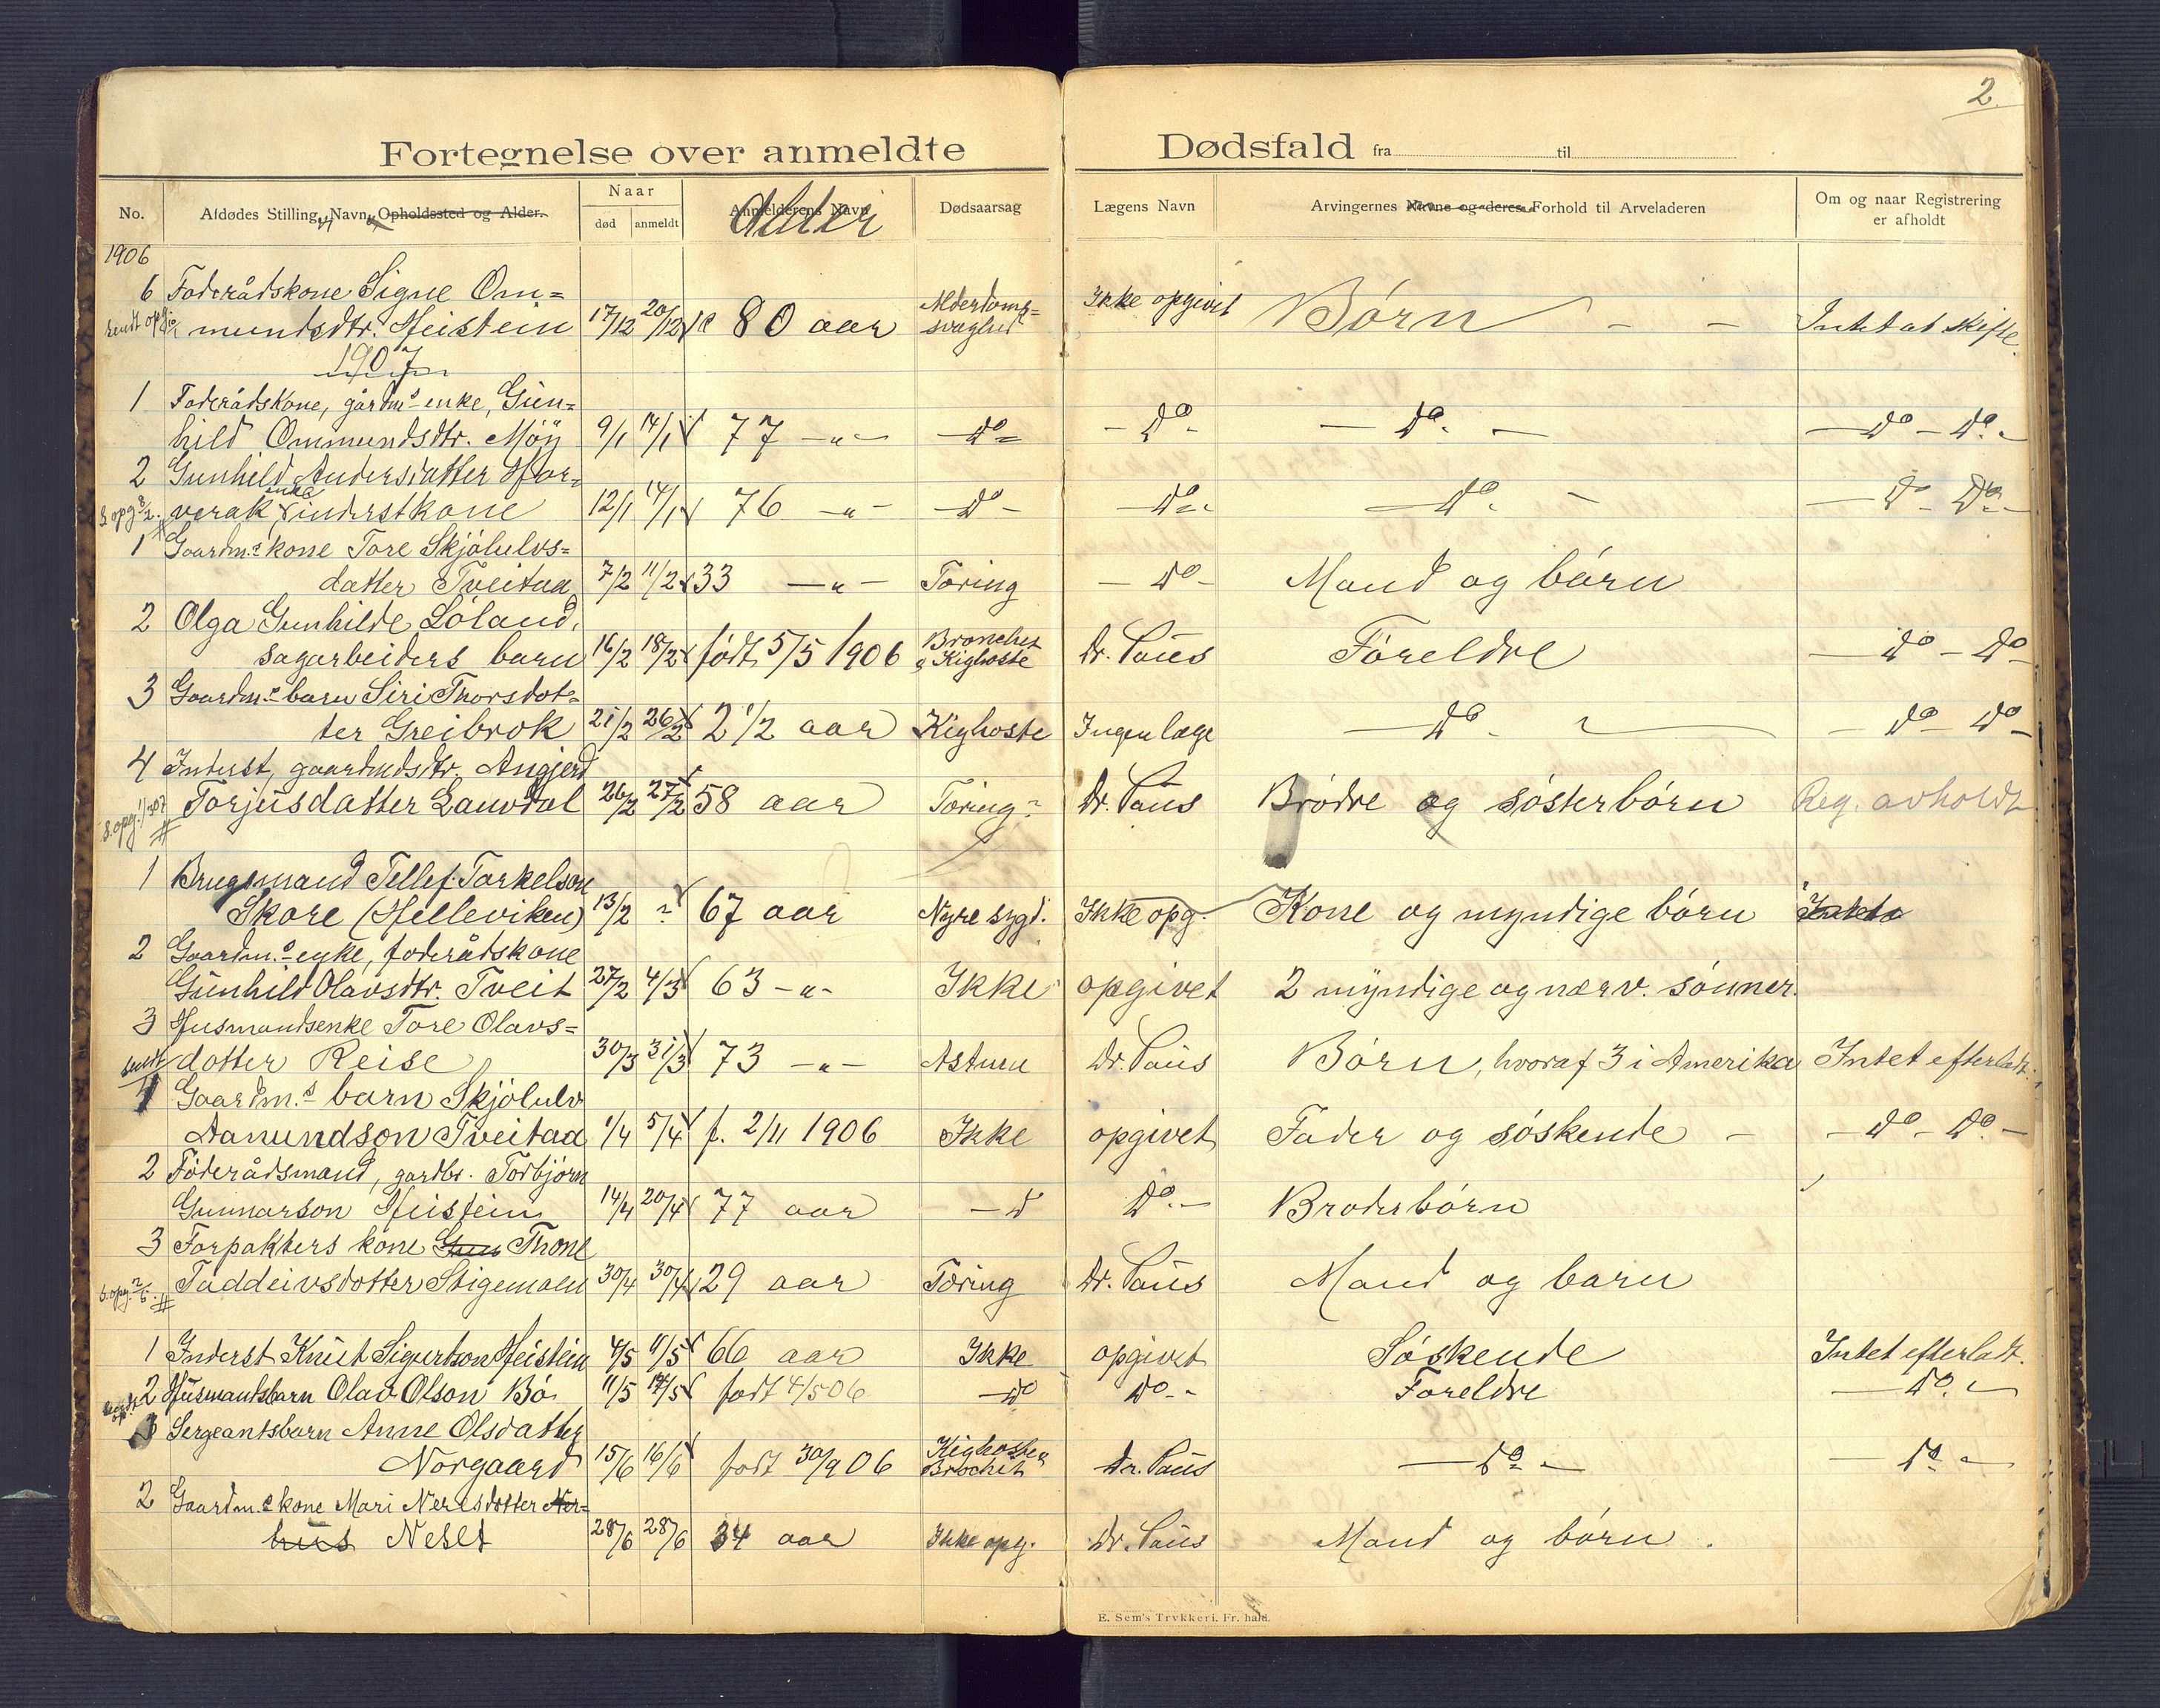 2.
Fortegnelse over anmeldte Dødsfald fra til
No. Afdødes Stilling, Navn, Opholdssted og Alder. Naar død anmeldt Anmelderens Navn Alder Dødsaarsag Lægens Navn Arvingernes Navne og deres Forhold til Arveladeren Om og naar Registrering er afholdt
1906
6 Foderådskone Signe Om=
mundsdtr. Heistein 17/12 20/12 80 aar Alderdoms=svaghed Ikke opgivet Børn - - Intet at skifte.
1907
1 Foderådskone, gårdms enke, Gun=
hild Ommundsdtr. Möÿ 9/1 14/1 77 -"- do - do - - do. - - do - do. -
2 Gunhild Andersdatter Hor=
verak enke inderstkone 12/1 14/1 76 -"- do - do - - do. - - do - do. -
1 Gaardms kone Tore Skjölulvs=
datter Tveitaa 7/2 11/2 33 -"- Tæring - do - Mand og börn
2 Olga Gunhilde Löland,
sagarbeiders barn 16/2 18/2 födt 5/5 1906 Bronchit og Kighoste Dr. Paus Foreldre - do - do -
3 Gaardms barn Siri Thorsdot=
ter Greibrok 21/2 26/2 2 1/2 aar Kighoste Ingen læge - do. - - do - do -
4 Inderst, gaardmdsdtr. Angjerd
Torjusdatter Lauvdal 26/2 27/2 58 aar Tæring? Dr. Paus Brödre og sösterbörn Reg. avholdt
1 Brugsmand Tellef Tarkelson
Skore (Helleviken) 13/2 ? 67 aar Nyresygd. Ikke opg. Kone og myndige börn Intet
2 Gaardms enke, foderådskone
Gunhild Olavsdtr. Tveit 27/2 4/3 63 -"- Ikke opgivet 2 myndige og nærv. sönner.
3 Husmandsenke Tore Olavs=
dotter Reise 30/3 31/3 73 -"- Astma Dr. Paus Börn, hvoraf 3 i Amerika Intet efterladt.
1 Gaardm.s barn Skjölulv
Aanundson Tveitaa 1/4 5/4 f. 2/11 1906 Ikke opgivet Fader og söskende - - do - do. -
2 Föderådsmand, gardbr. Torbjörn
Gunnarson Heistein 14/4 20/4 77 aar - d do. - Broderbörn
3 Forpakters kone Thone
Taddeivsdotter Stigemoen 30/4 30/4 29 aar Tæring Dr. Paus Mand og barn
1 Inderst Knut Sigurtson Heistein 4/5 11/5 66 aar Ikke opgivet Söskende Intet efterladt.
2 Husmandsbarn Olav Olson Bö 11/5 14/5 födt 4/5 06 - do do. - Foreldre - do. -
1 Sergeantsbarn Anne Olsdatter
Norgaard 15/6 16/6 födt 30/9 06 Kighoste Dr. Paus - do - - do -
2 Gaardm.s kone Mari Neresdotter Ner=
hus Neset 28/6 28/6 34 aar Ikke opg. Dr. Paus Mand og börn.
E. Sem's Trykkeri. Fr. hald.